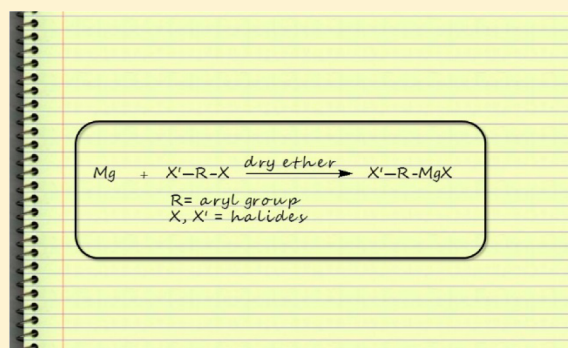 Mg + X'—R-X dry ether X'—R-MgX
R= aryl group
X, X' = halides